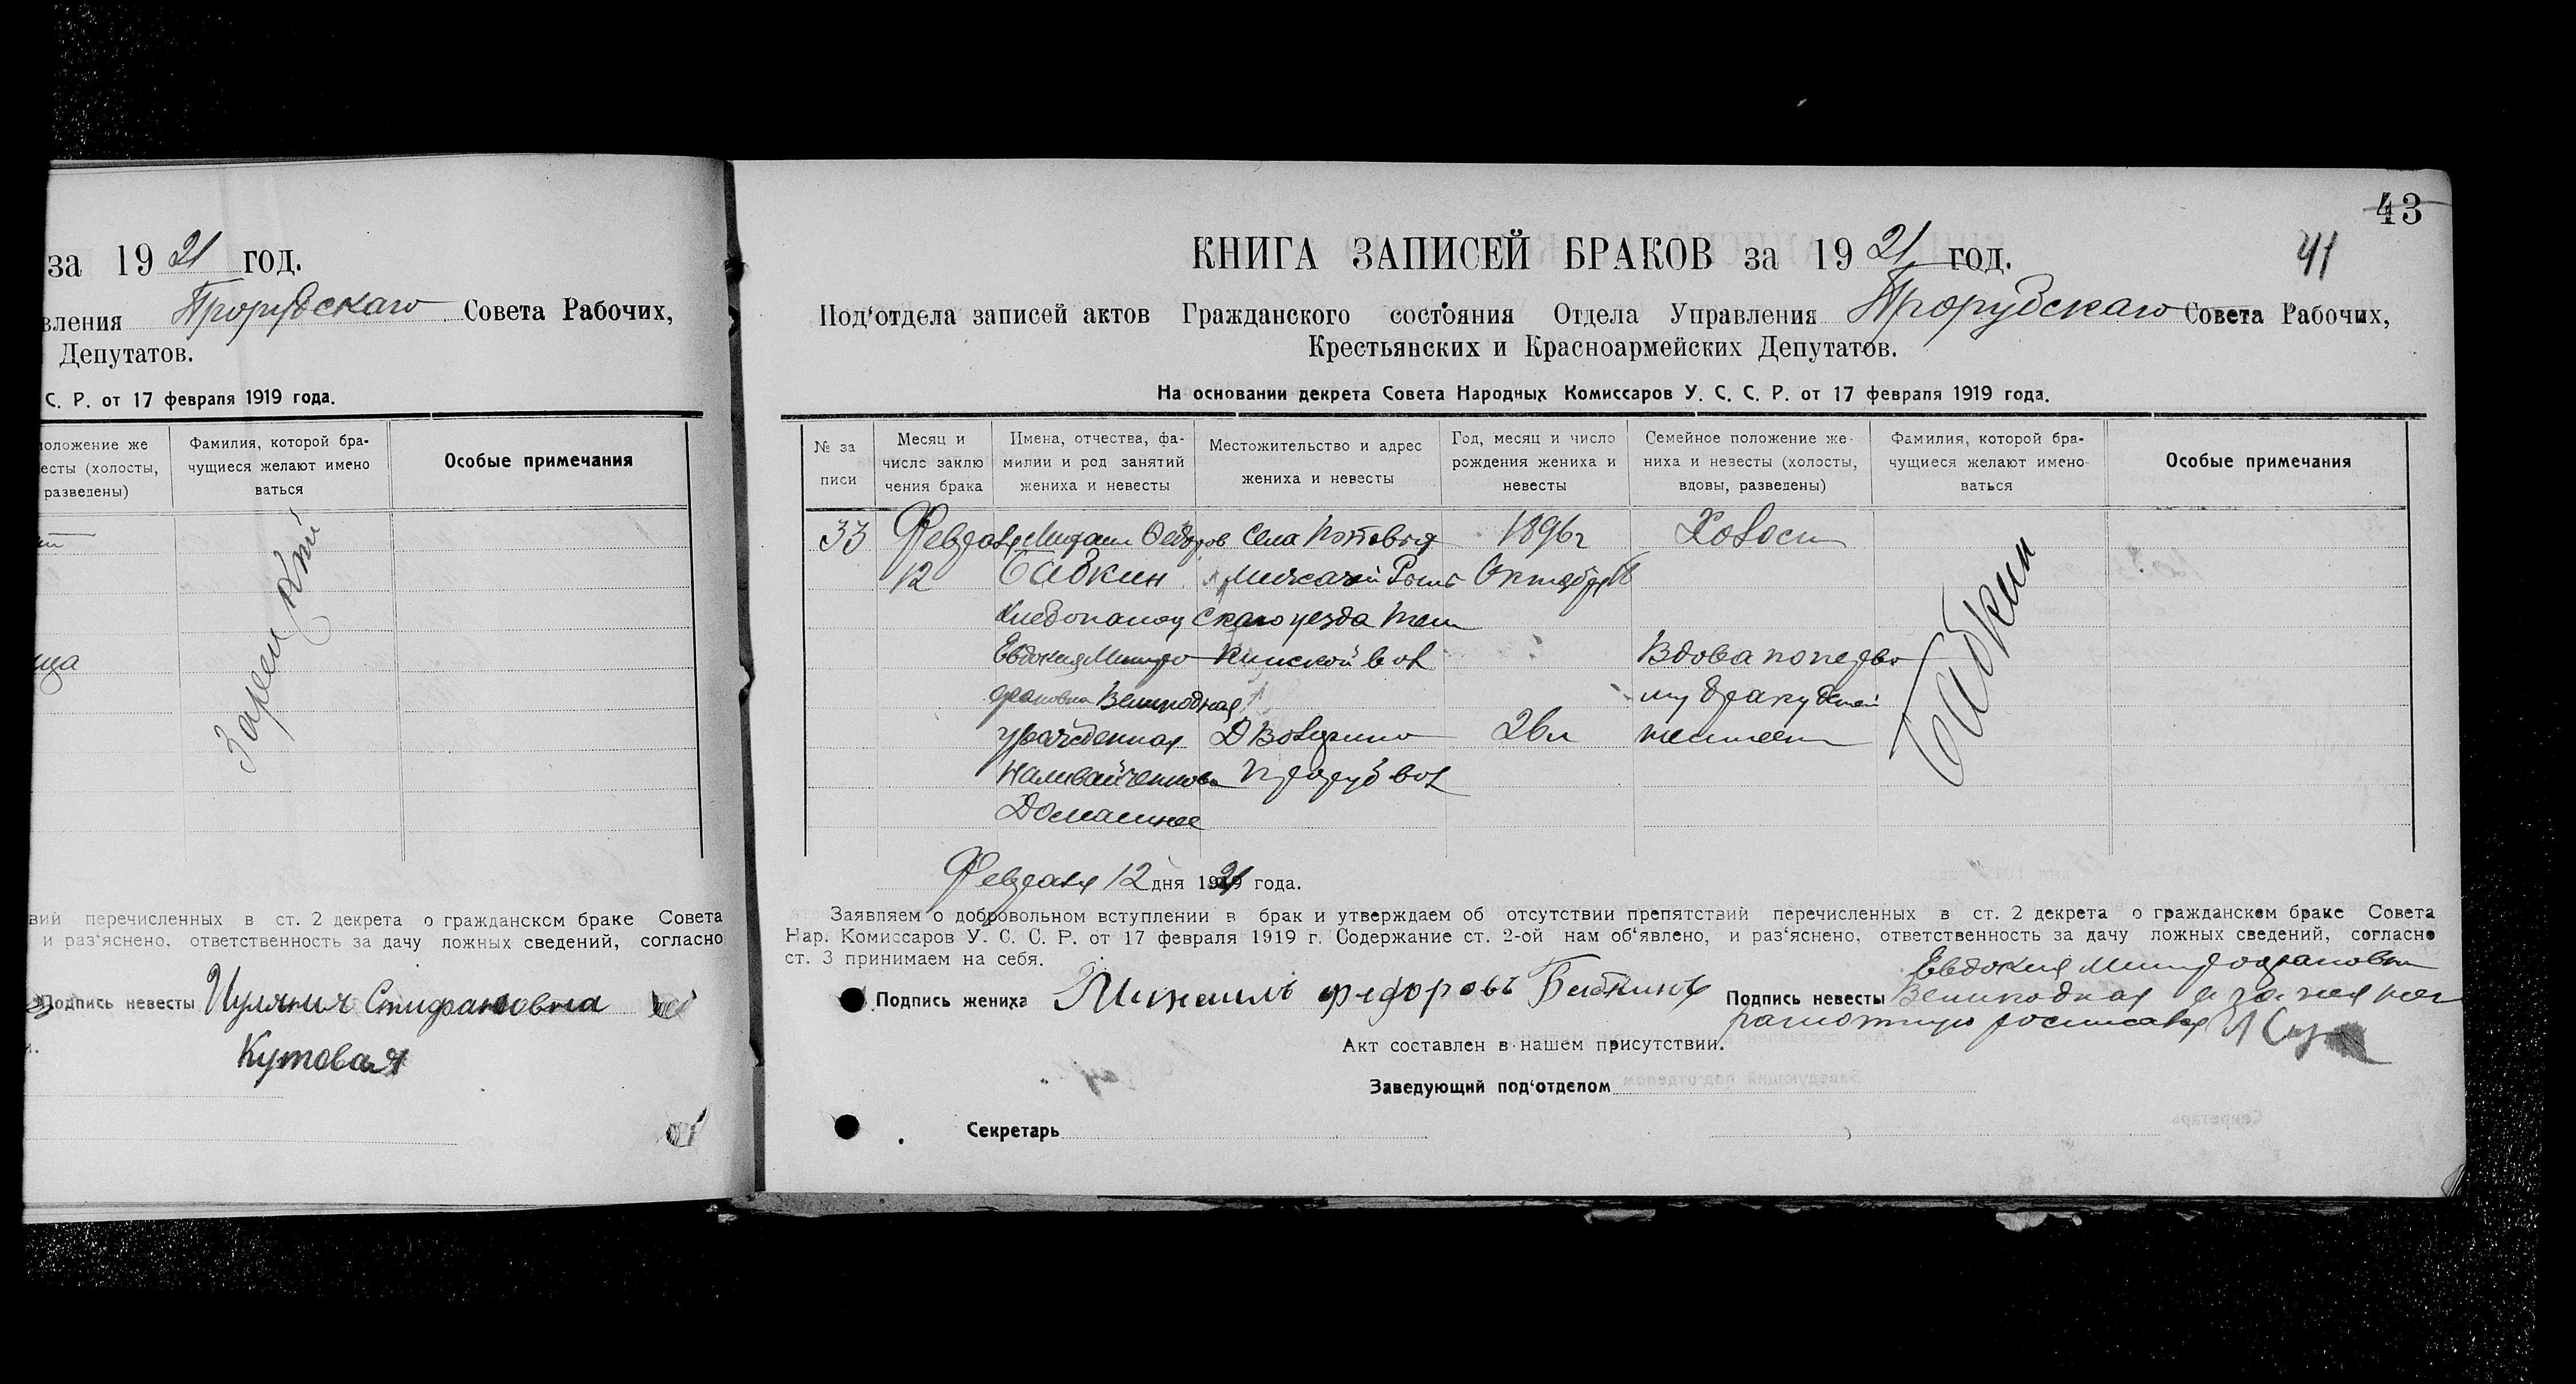 за 1921 год.
вления Прорубскаго Совета Рабочих,
Депутатов.
С. Р. от 17 февраля 1919 года.
положение же
есты (холосты,
разведены)
Фамилия, которой бра-
чущиеся желают имено
ваться
Особые примечания
ица
вий перечисленных в ст. 2 декрета о гражданском браке Совета
и раз'яснено, ответственность за дачу ложных сведений, согласно
Подпись невесты Стифановна
Кутовая
43
41
КНИГА ЗАПИСЕЙ БРАКОВ за 1921 год.
Под'отдела записей актов Гражданского состояния Отдела Управления Прорубскаго Совета Рабочих,
Крестьянских и Красноармейских Депутатов.
На основании декрета Совета Народных Комиссаров У. С. С. Р. от 17 февраля 1919 года.
№ за
писи
Месяц и
число заклю
чения брака
Имена, отчества, фа-
милии и род занятий
жениха и невесты
Местожительство и адрес
жениха и невесты
Год, месяц и число
рождения жениха и
невесты
Семейное положение же-
ниха и невесты (холосты,
вдовы, разведены)
Фамилия, которой бра-
чущиеся желают имено-
ваться
Особые примечания
33
Февраля
12
Михаил Федоров
Бабкин
Хлебопашец
Евдокия Митро
фановна Великодная
урожденная
Наливайченкова
Домашнее
Села
скаго уезда
вол
Д
Проруб вол
1896г
Октября
26л
Холост
Вдова по перво
му браку детей
неимеет
Бабкин
Февраля 12 дня 1921 года.
Заявляем о добровольном вступлении в брак и утверждаем об отсутствии препятствий перечисленных в ст. 2 декрета о гражданском браке Совета
Нар. Комиссаров У. С. С. Р. от 17 февраля 1919 г. Содержание ст. 2-ой нам об'явлено, и раз'яснено, ответственность за дачу ложных сведений, согласно
ст. 3 принимаем на себя.
Подпись жениха Михаилъ Федоровъ Бабкинъ
Подпись невесты Евдокия Митрофановна
Великодная а за нея нег
рамотную росписався
Акт составлен в нашем присутствии.
Заведующий под'отделом
Секретарь